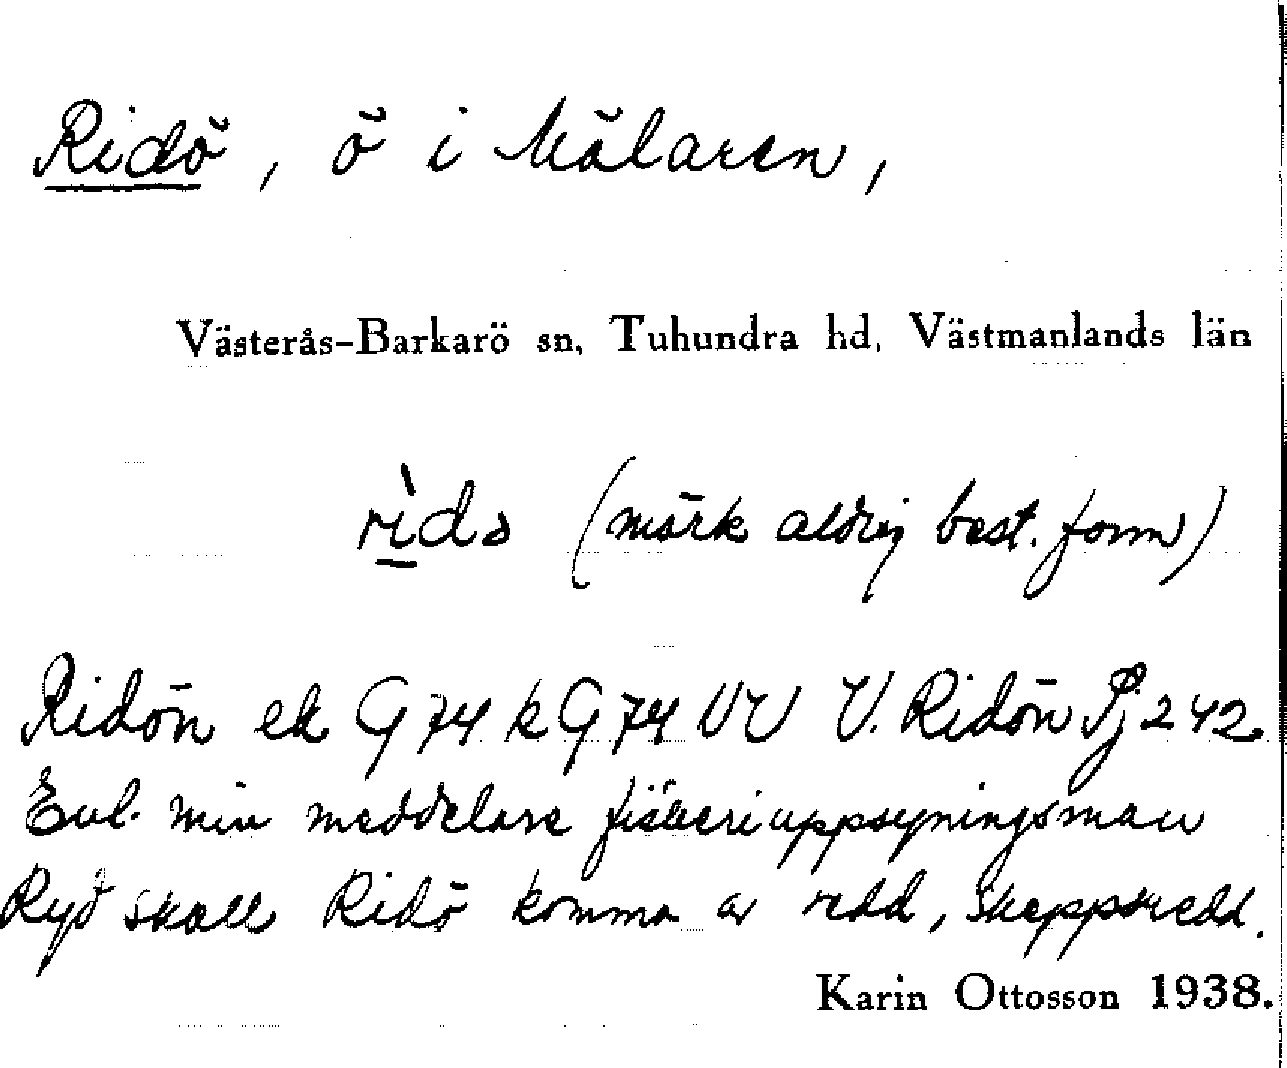 Ridö, ö i Mälaren,
Västerås-Barkarö sn, Tuhundra hd, Västmanlands län
rìdə (märk aldrig best. form)
Ridön ek G 74 k G 74 VV V. Ridön Pj 242.
Enl. min meddelare fiskeriuppsyningsman
Ryd skall Ridö komma av redd, skeppsredd.
Karin Ottosson 1938.